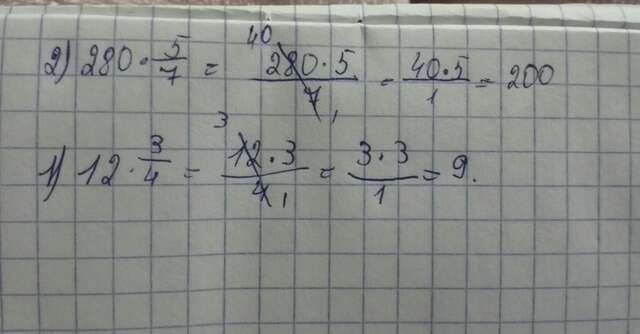 2) 280 · 5/7 = 40 280 · 5 / 7 1 = 40 · 5 / 1 = 200
1) 12 · 3/4 = 3 12 · 3 / 4 1 = 3 · 3 / 1 = 9.